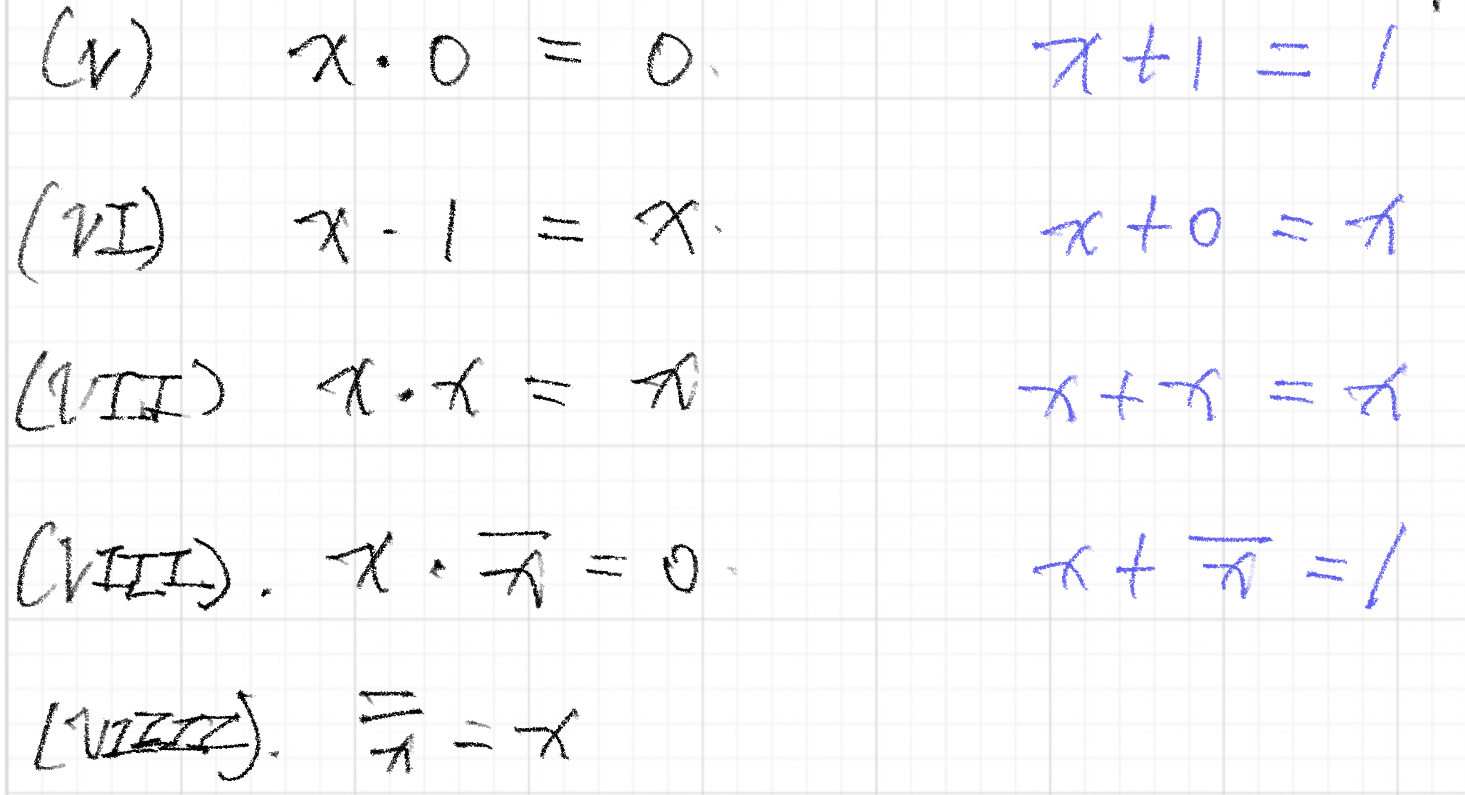 (V) x · 0 = 0. x + 1 = 1
(VI) x · 1 = x. x + 0 = x
(VII) x · x = x x + x = x
(VIII). x · x̅ = 0. x + x̅ = 1
(VIIII). x̿ = x